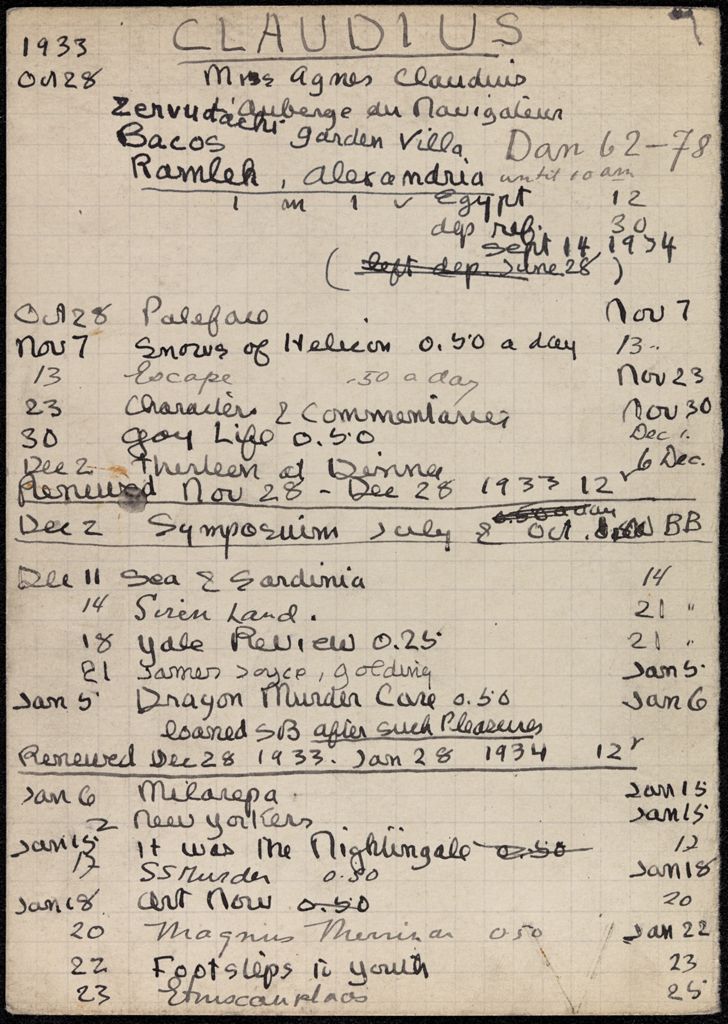 CLAUDIUS
1933
Oct 28 Miss Agnes Claudius
Zervudachi
l'Auberge du Navigateur
Bacos Garden Villa Dan 62-78
Ramleh, Alexandria until 10 am
1 m 1 v Egypt 12
dep 30
Sept 14, 1934
(left dep. June 28)
Oct 28 Paleface Nov 7
Nov 7 Snows of Helicon 0.50 a day 13
13 Escape .50 a day Nov 23
23 Characters & Commentaries Nov 30
30 Gay Life 0.50 Dec 1.
Dec 2 Thirteen at Dinner 6 Dec.
Renewed Nov 28 - Dec 28 1933 12
0.50 a day
Dec 2 Symposium July & Oct. BB
Dec 11 Sea & Sardinia 14
14 Siren Land. 21 "
18 Yale Review 0.25 21 "
21 James Joyce, Golding Jan 5
Jan 5 Dragon Murder Case 0.50 Jan 6
loaned SB after such Pleasures
Renewed Dec 28 1933. Jan 28 1934 12 r
Jan 6 Milarepa. Jan 15
2 New Yorkers Jan 15
Jan 15 It was the Nightingale 0.50 17
17 SS Murder 0.50 Jan 18
Jan 18 Art Now 0.50 20
20 Magnus Merriman 0 50 Jan 22
22 Footsteps in youth 23
23 Etruscan places 25